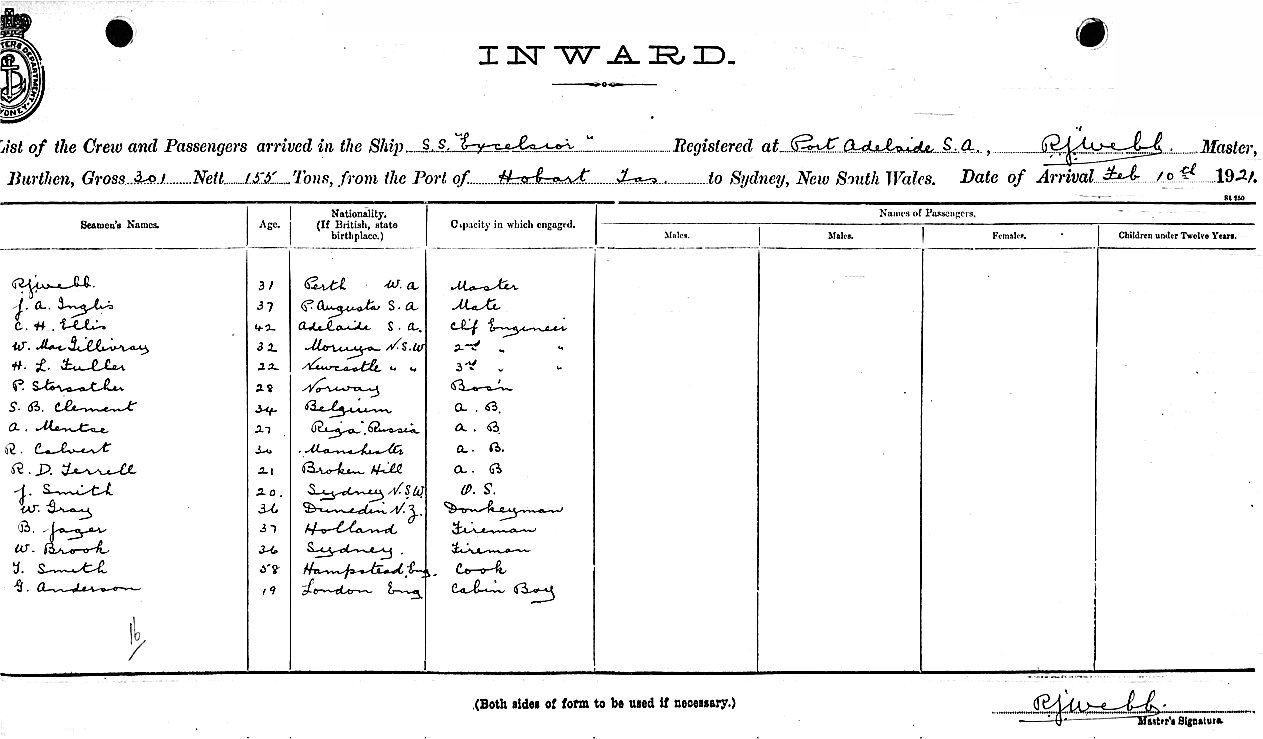 TERS DEPARTMENT
SYDNEY
INWARD.
List of the Crew and Passengers arrived in the Ship S.S. "Excelsior" Registered at Port Adelaide S.A., R J Webb. Master,
Burthen, Gross 301 Nett 155 Tons, from the Port of Hobart Tas. to Sydney, New South Wales. Date of Arrival Feb 10th 1921.
Names of Passengers.
Seamen's Names. Age. Nationality. (If British, state birthplace.) Capacity in which engaged. Males. Males. Females. Children under Twelve Years.
R J Webb. 31 Perth W.A Master
J. A. Inglis 37 P. Augusta S.A Mate
C. H. Ellis 42 Adelaide S.A. Chf Engineer
W. MacGillivray 32 Moruya N.S.W 2nd " "
H. L. Fuller 22 Newcastle " " 3rd " "
P. Storsather 28 Norway Bos'n
S. B. Clement 34 Belgium A. B.
A. Mentse 27 Riga. Russia A. B.
R. Calvert 30 Manchester A. B.
R. D. Ferrell 21 Broken Hill A. B
J. Smith 20. Sydney N.S.W O. S.
W. Gray 36 Dunedin N.Z. Donkeyman
B. Jager 37 Holland Fireman
W. Brook 36 Sydney. Fireman
T. Smith 58 Hampstead, Eng. Cook
G. Anderson 19 London Eng Cabin Boy
16
(Both sides of form to be used if necessary.)
R J Webb.
Master's Signature.